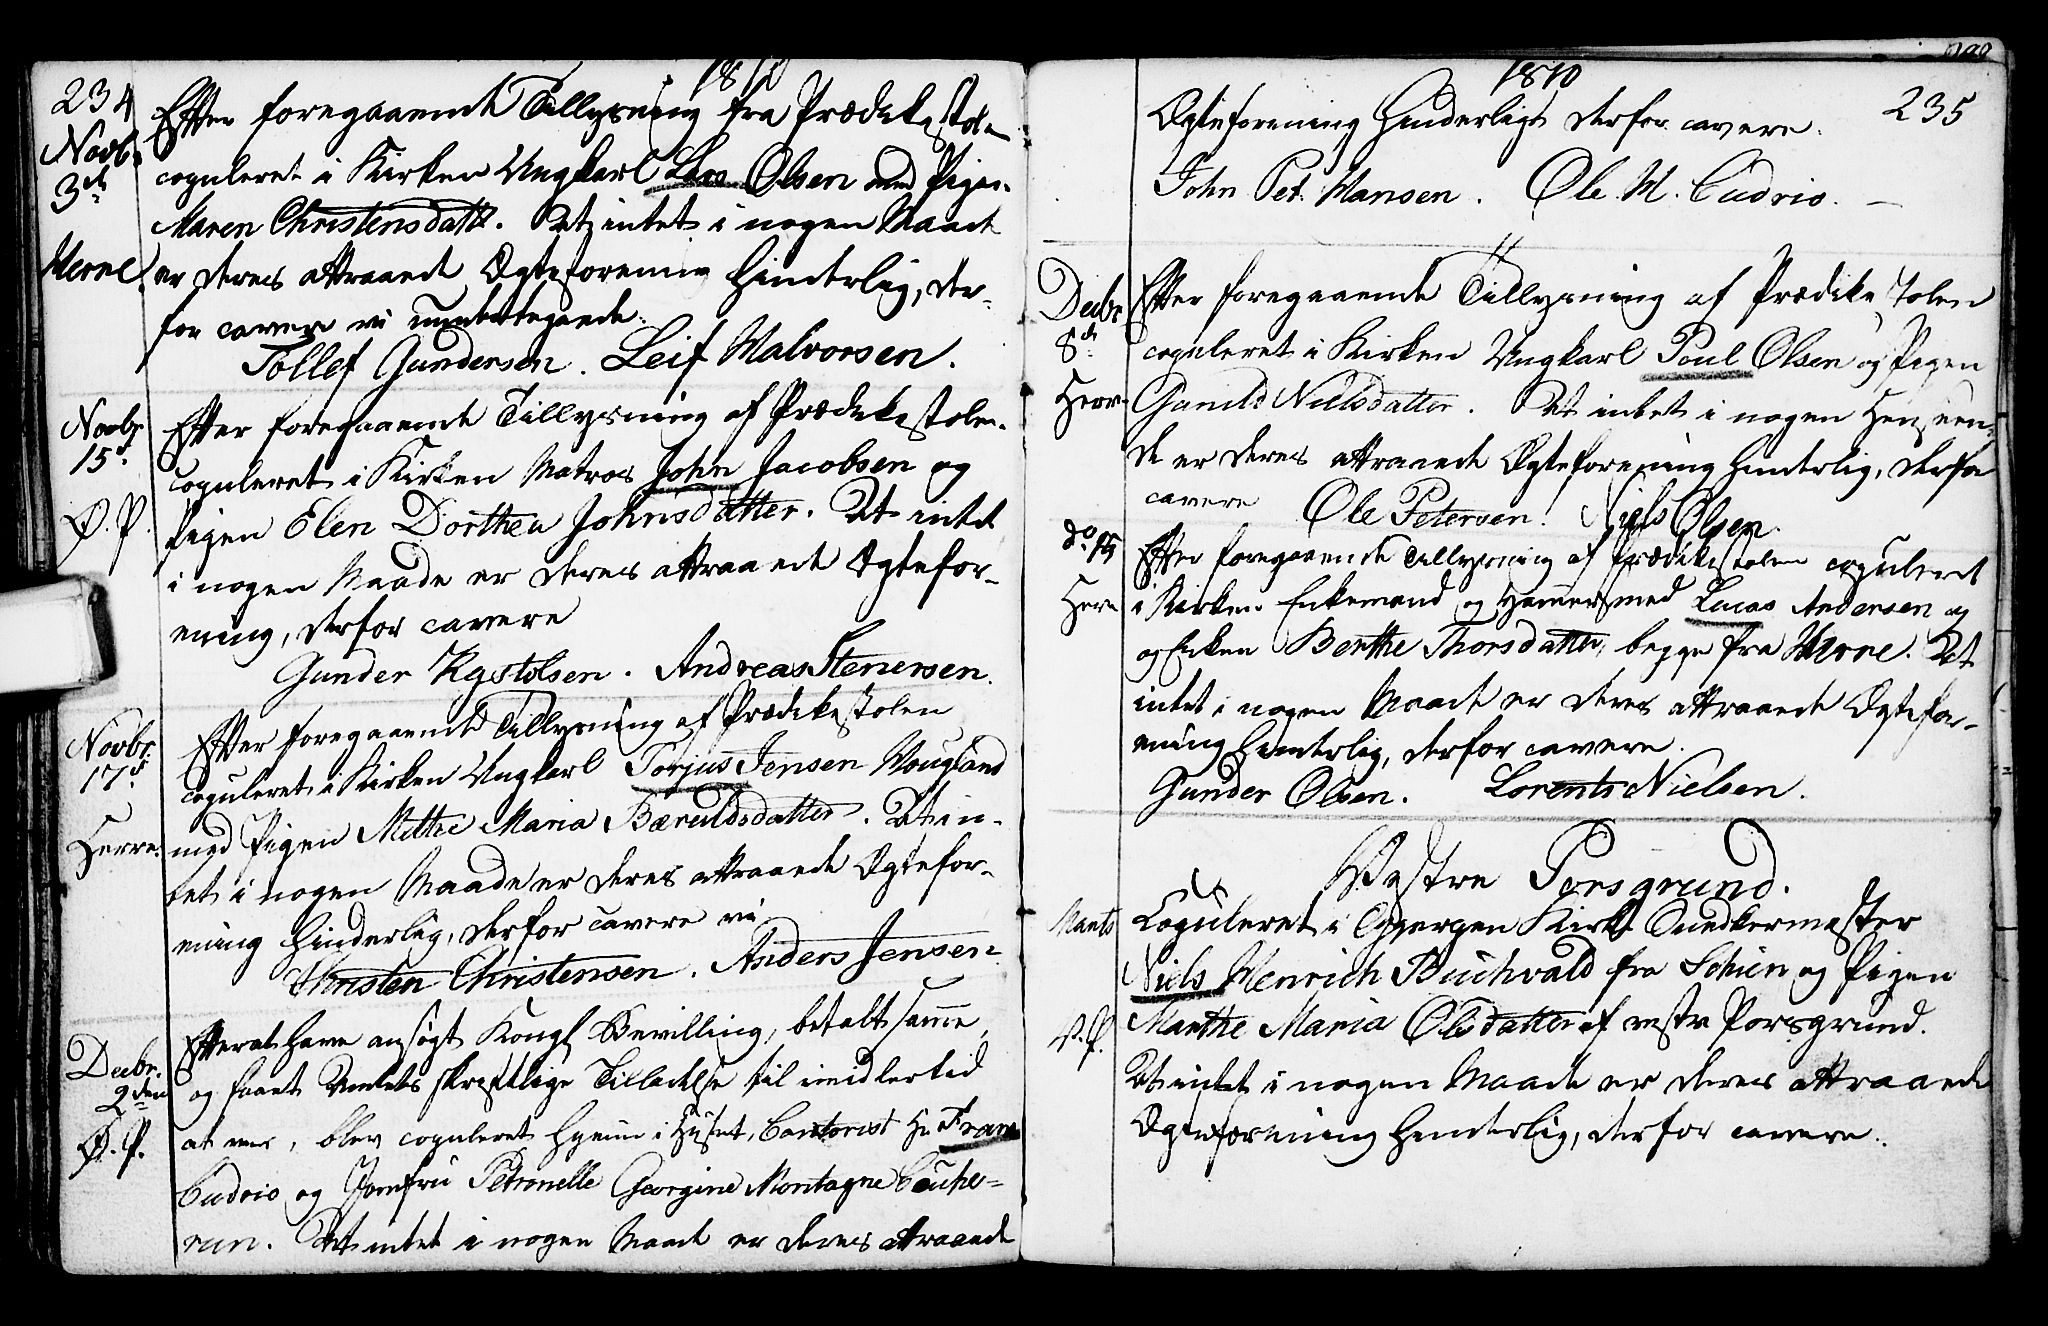 234
1810
Novbr
3de
Herre
Efter foregaaende Tillysning fra Prædikestolen
copuleret i Kirken Ungkarl Lars Olsen med Pigen
Maren Christensdatt. At intet i nogen Maade
er deres attraaede Ægteforening hinderlig, der-
for cavere vi underteg­nede.
Tollef Gundersen. Leif Halvorsen.
Novbr
15de
Ø. P.
Efter foregaaende Tillysning af Prædikestolen
copuleret i Kirken Matros John Jacobsen og
Pigen Elen Dorthea Johnsdatter. At intet
i nogen Maade er deres attraaede Ægtefor-
ening, derfor cavere
Gunder Kystolsen. Andreas Stenersen.
Novbr.
17de
Herre.
Efter foregaaende Tillysning af Prædikestolen
copuleret i Kirken Ungkarl Torjus Jensen Hougland
med Pigen Methe Maria Bæruldsdatter. At in-
tet i nogen Maade er deres attraaede Ægtefor-
ening hinderlig, derfor cavere vi
Christen Christensen. Anders Jensen
Decbr.
2den
Ø. P.
Efterat have ansøgt Kongl Bevilling, betalt samme,
og faaet Amtets skreftlige Tilladelse til imidlertid
at , blev copuleret hjemme i Huset, Contorist Hr Frans
Cudrio og Jomfru Petronelle Georgine Montagne Couhe-
ron. At intet i nogen Maade er deres attraaede
1810
235
Ægteforening hinderligt derfor cavere.
John Pet. Hansen. Ole M. Cudrio.
Decbr
8de
Herre
Efter foregaaende Tillysning af Prædikestolen
copuleret i Kirken Ungkarl Poul Olsen og Pigen
Gunild Nielsdatter. At intet i nogen Henseen-
de er deres attraaede Ægteforening hinderlig, derfor
cavere Ole Petersen. Niels Olsen.
do 15
Herre
Efter foregaaende Tillysning af Prædikestolen copuleret
i Kirken Enkemand og Hammersmed Lucas Andersen og
og Enken Berthe Thorsdatter, begge fra Herre. At
intet i nogen Maade er deres attraaede Ægtefor-
ening hinderlig, derfor cavere.
Gunder Olsen. Lorents Nielsen.
Vestre Porsgrund.
Marts
V. P.
Copuleret i Gjerpen Kirke Snedkermester
Niels Henrich Buchvald fra Schien og Pigen
Marthe Maria Olsdatter af vestre Porsgrund.
At intet i nogen Maade er deres attraaede
Ægteforening hinderlig, derfor cavere.